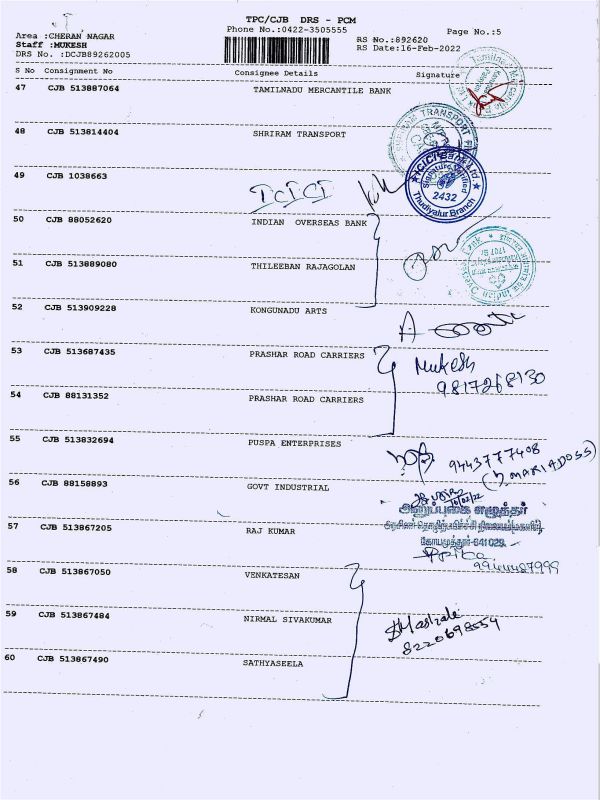 TPC/CJB DRS - PCM
Phone No.:0422-3505555
Page No.:5
Area :CHERAN NAGAR
Staff :MUKESH
DRS No. :DCJB89262005
RS No.:892620
RS Date:16-Feb-2022
S No Consignment No Consignee Details Signature
47 CJB 513887064 TAMILNADU MERCANTILE BANK
48 CJB 513814404 SHRIRAM TRANSPORT
TRANSPORT
49 CJB 1038663 ICICI
ICICI Bank Ltd
Signature Verified
2432
Thudiyalur Branch
50 CJB 88052620 INDIAN OVERSEAS BANK
51 CJB 513889080 THILEEBAN RAJAGOLAN
52 CJB 513909228 KONGUNADU ARTS
53 CJB 513687435 PRASHAR ROAD CARRIERS
Mukesh
9817268130
54 CJB 88131352 PRASHAR ROAD CARRIERS
55 CJB 513832694 PUSPA ENTERPRISES
9443777408
56 CJB 88158893 GOVT INDUSTRIAL
கோயமுத்தூர்-641029
57 CJB 513867205 RAJ KUMAR
58 CJB 513867050 VENKATESAN
59 CJB 513867484 NIRMAL SIVAKUMAR
8220698554
60 CJB 513867490 SATHYASEELA